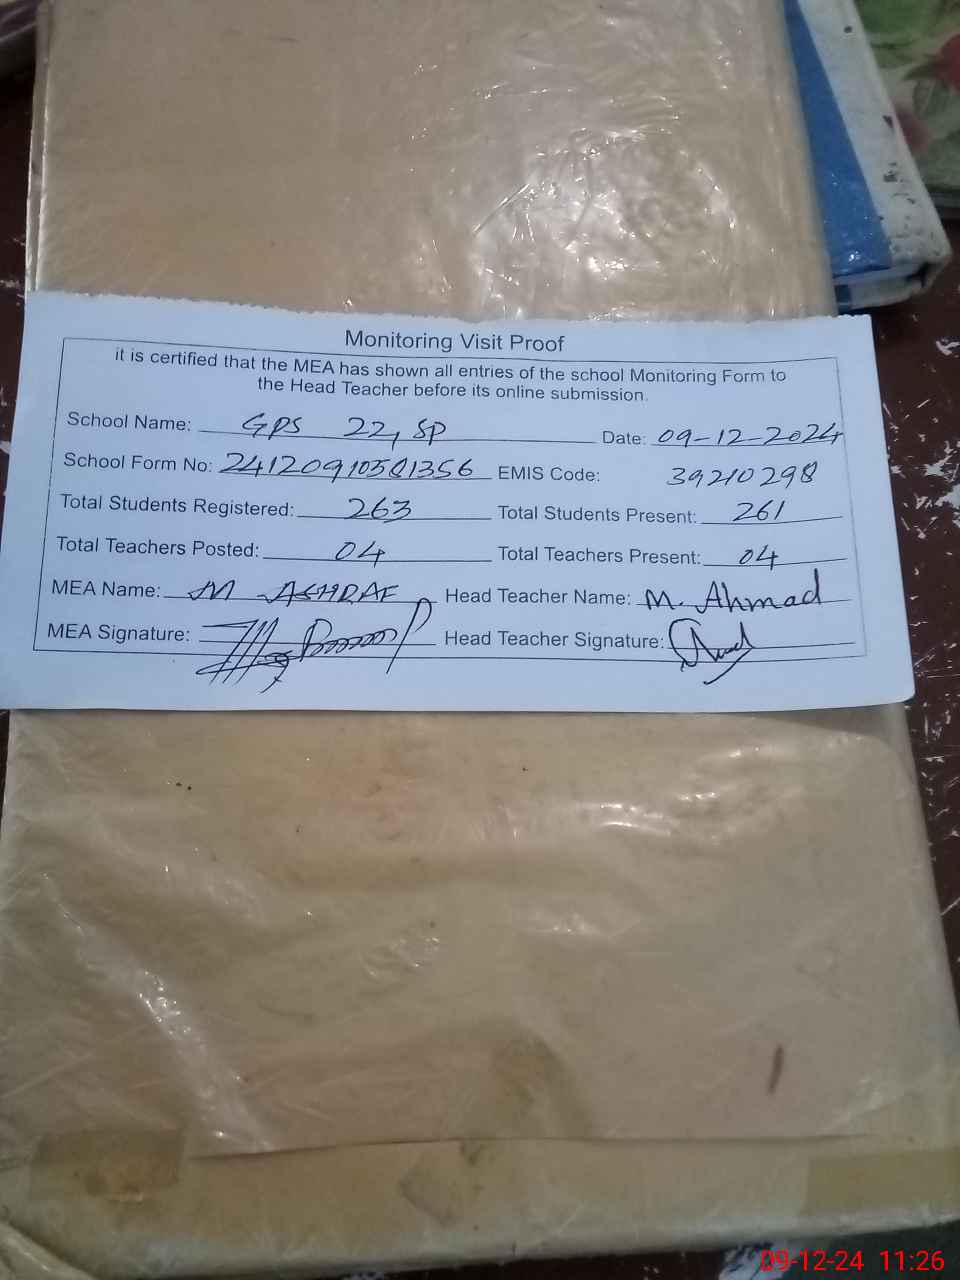 Monitoring Visit Proof
it is certified that the MEA has shown all entries of the school Monitoring Form to
the Head Teacher before its online submission.
School Name: GPS 22, SP Date: 09-12-2024
School Form No: 24120910581356 EMIS Code: 39210298
Total Students Registered: 263 Total Students Present: 261
Total Teachers Posted: 04 Total Teachers Present: 04
MEA Name: M ASHRAF Head Teacher Name: M. Ahmad
MEA Signature: Head Teacher Signature:
09-12-24 11:26